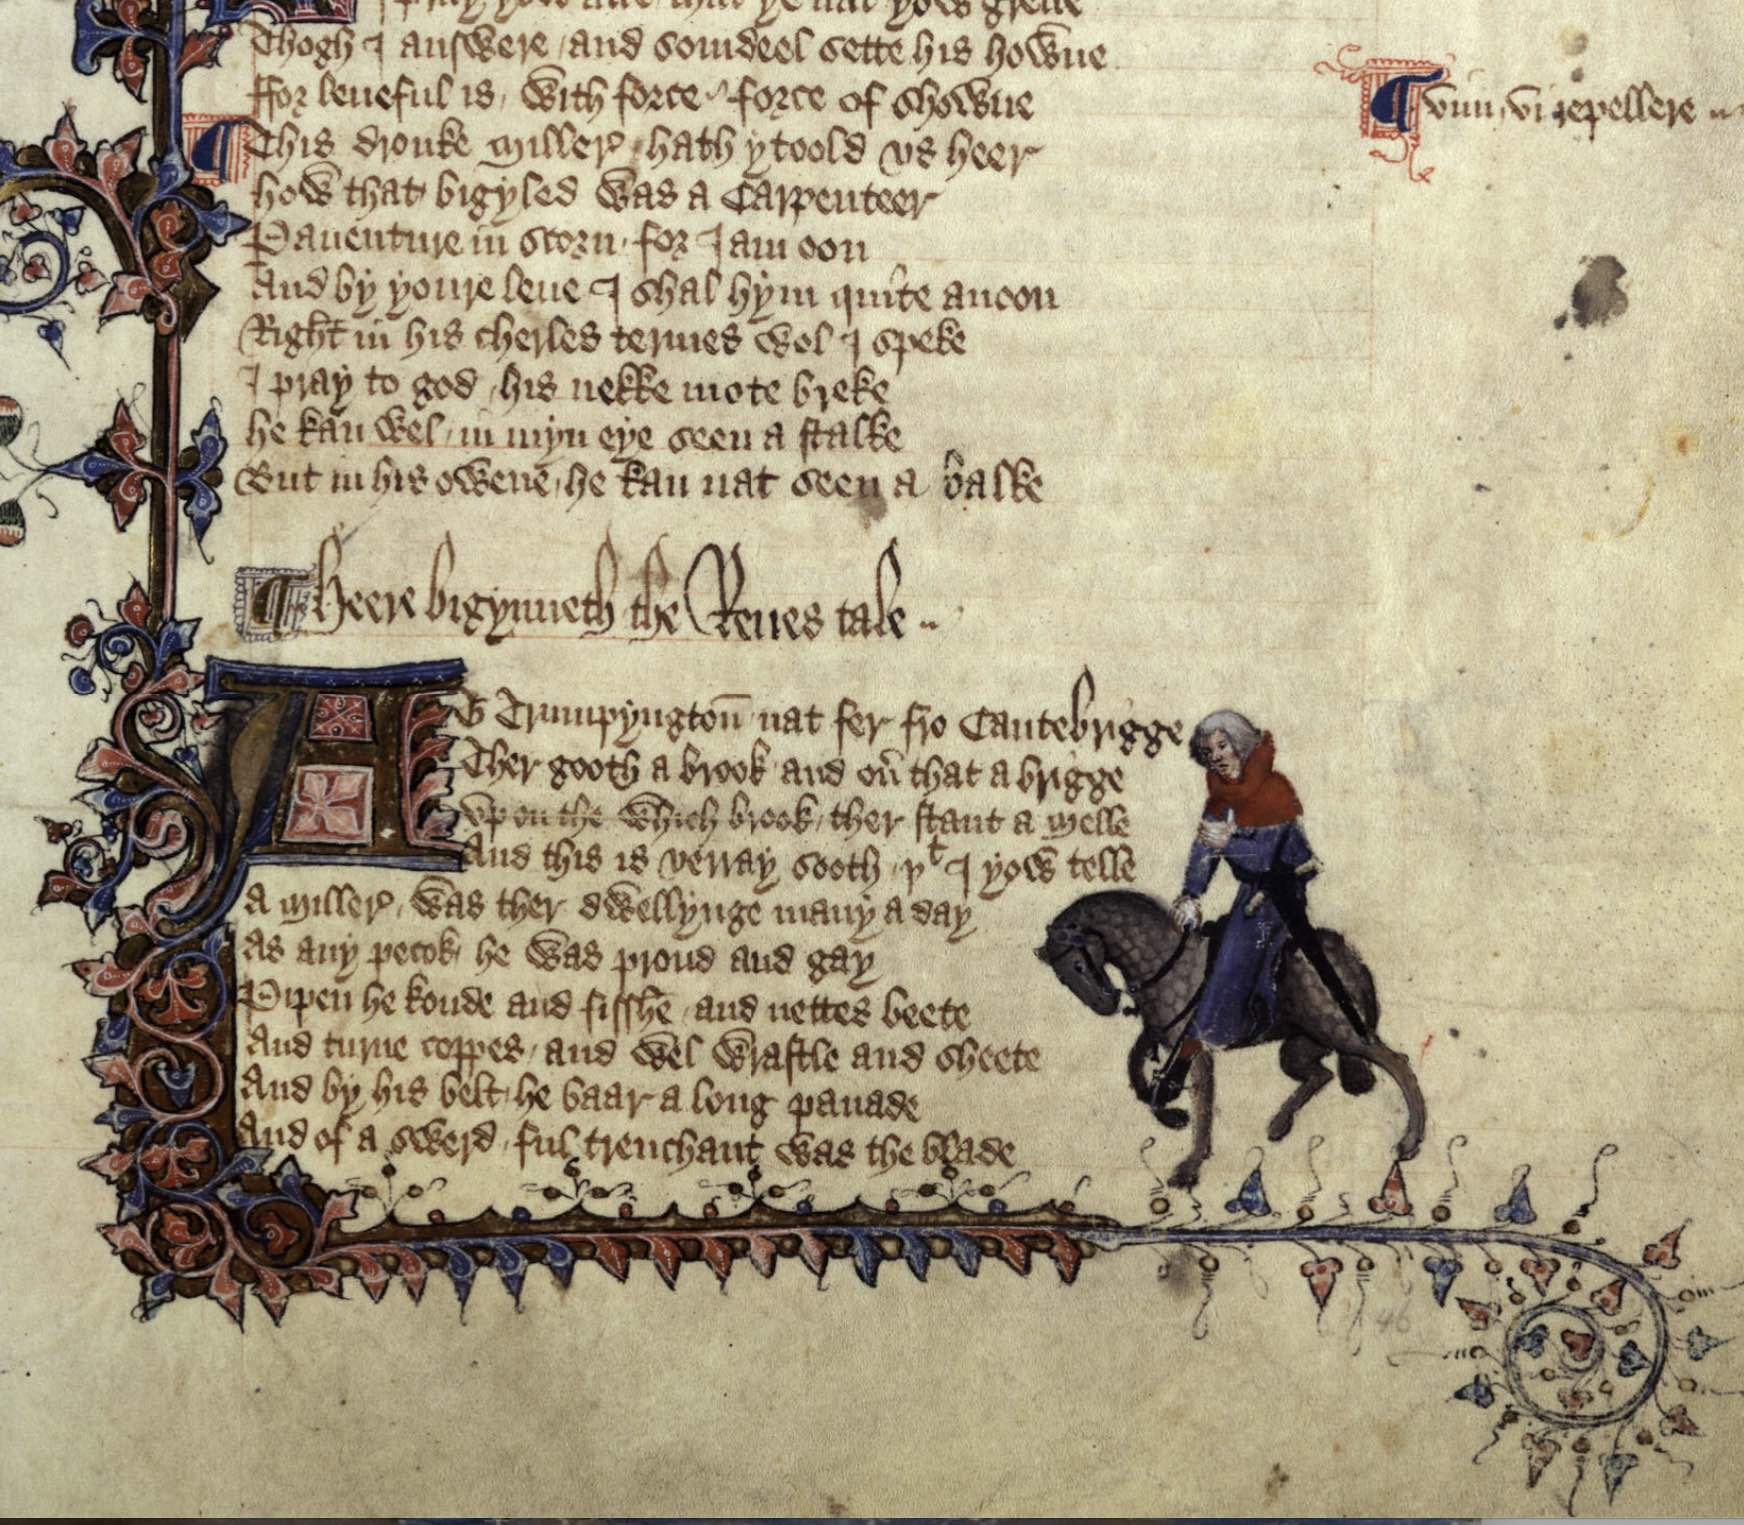 I pray yow alle that ye nat yow greue
Thogh I answere / and somdeel sette his howue
ffor leueful is / with force / force of showue
¶ vim vi repellere
¶ This dronke Miller / hath ytoold vs heer
how that bigyled was a Carpenteer
Pauenture in scorn / for I am oon
And by youre leue I shal hym quite anoon
Right in his cherles termes wol I speke
I pray to god / his nekke mote breke
he kan wel / in myn eye seen a stalke
But in his owene / he kan nat seen a balke
¶ Heere bigynneth the Reues tale
AT Trumpyngton̄ nat fer fro Cantebrigge
Ther gooth a brook and on̄ that a brigge
Vpon the which brook / ther stant a Melle
And this is verray sooth / þᵗ I yow telle
A Miller / was ther dwellynge many a day
As any pecok he was proud and gay
Pipen he koude and fisshe / and nettes beete
And turne coppes / and wel wrastle and sheete
And by his belt he baar a long panade
And of a swerd / ful trenchant was the blade